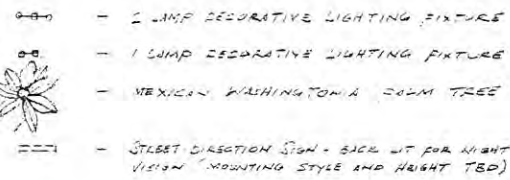 — 2 LAMP DECORATIVE LIGHTING FIXTURE
— 1 LAMP DECORATIVE LIGHTING FIXTURE
— MEXICAN WASHINGTONIA PALM TREE
— STREET DIRECTION SIGN - BACK LIT FOR NIGHT
VISION (MOUNTING STYLE AND HEIGHT TBD)